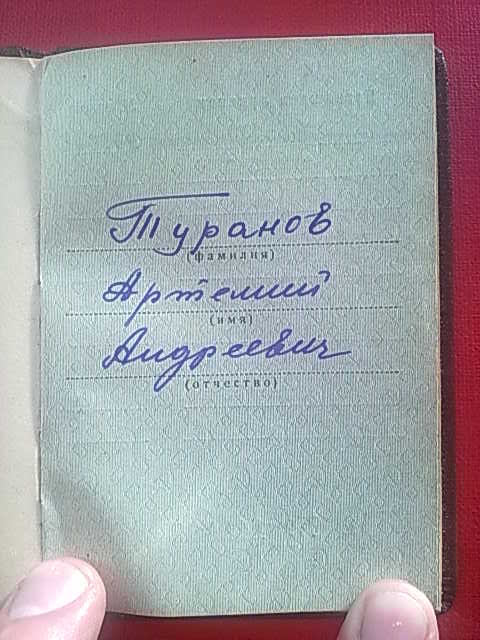 Туранов
(фамилия)
Артемий
(имя)
Андреевич
(отчество)